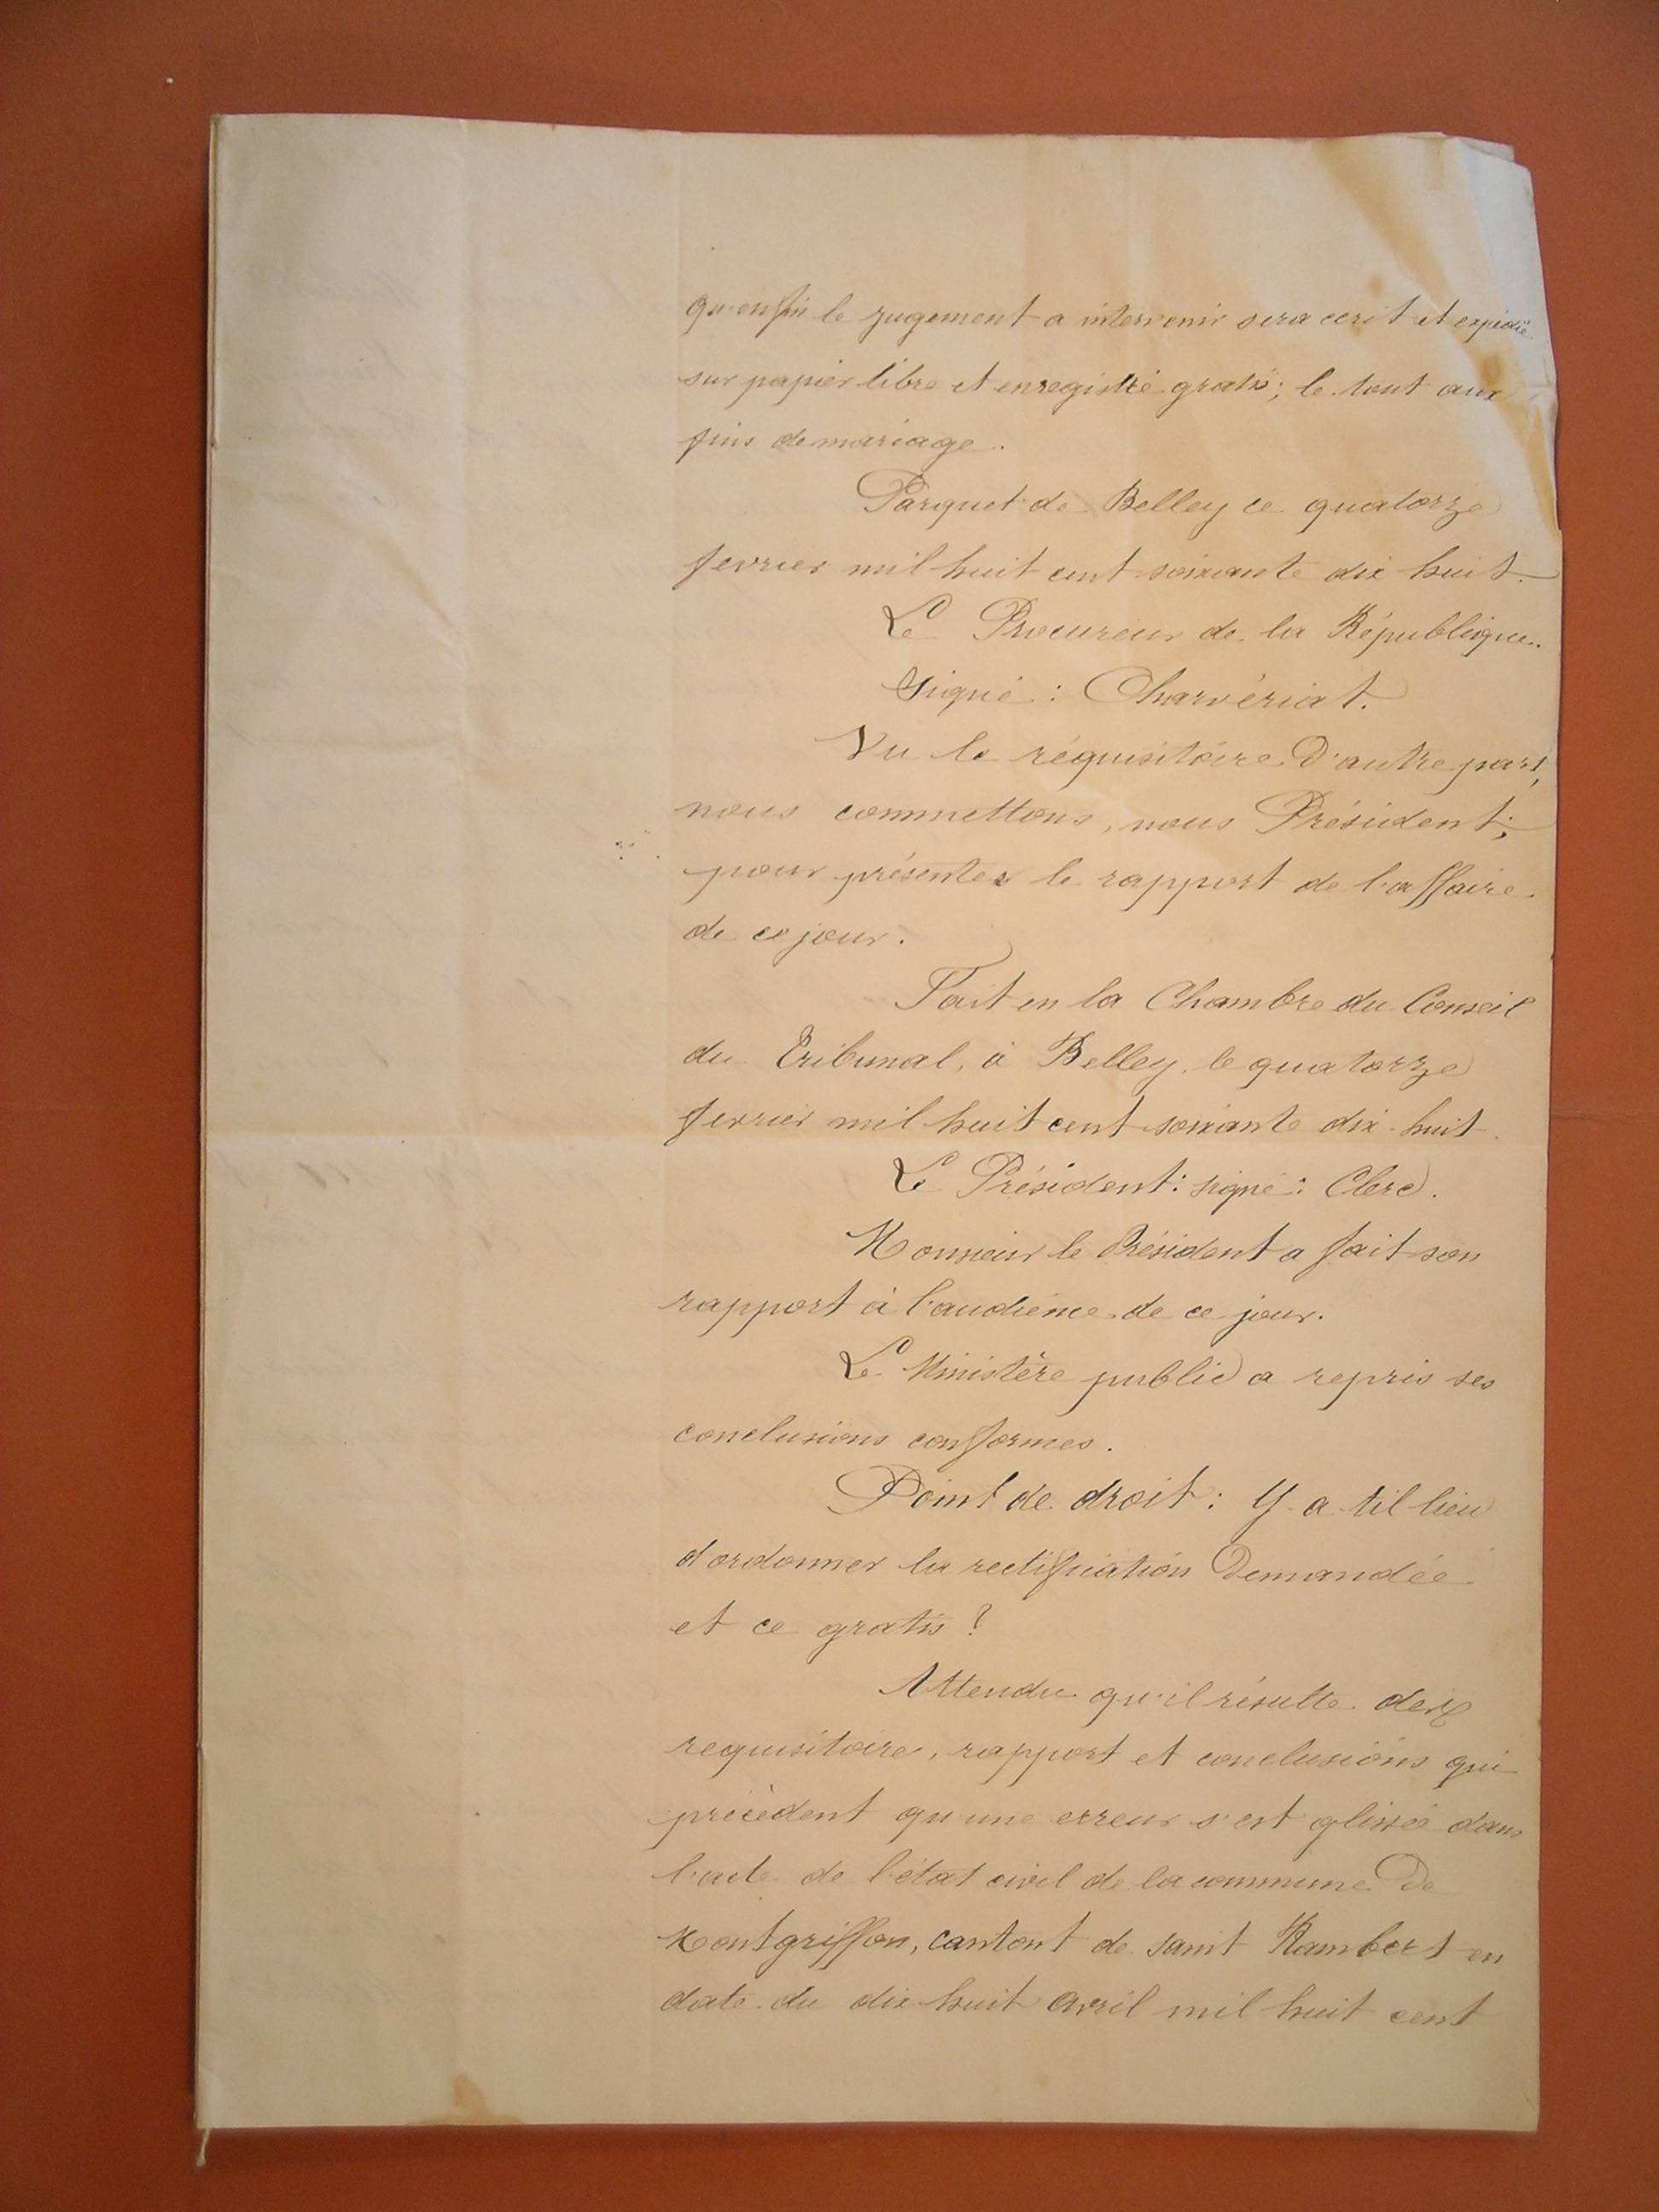 qu'enfin le jugement a intervenir sera ecrit et expédié
sur papier libre et enregistré gratis; le tout aux
fins de mariage.
Parquet de Belley ce quatorze
fevrier mil huit cent soixante dix huit.
Le Procureur de la République.
Signé : Charvériat.
Vu le réquisitoire d'autre part,
nous commettons, nous Président;
pour présenter le rapport de l'affaire
de ce jour.
Fait en la Chambre du Conseil
du Tribunal, à Belley, le quatorze
fevrier mil huit cent soixante dix-huit.
Le Président: signé: Clerc.
Monsieur le Président a fait son
rapport à l'audience de ce jour.
Le Ministère public a repris ses
conclusions conformes.
Point de droit: Y-a-til lieu
d'ordonner la rectification demandée
et ce gratis ?
Attendu qu'il résulte des
requisitoire, rapport et conclusions qui
précèdent qu'une erreur s'est glissée dans
l'acte de l'état civil de la commune de
Montgriffon, cantont de saint Rambert en
date du dix huit avril mil huit cent